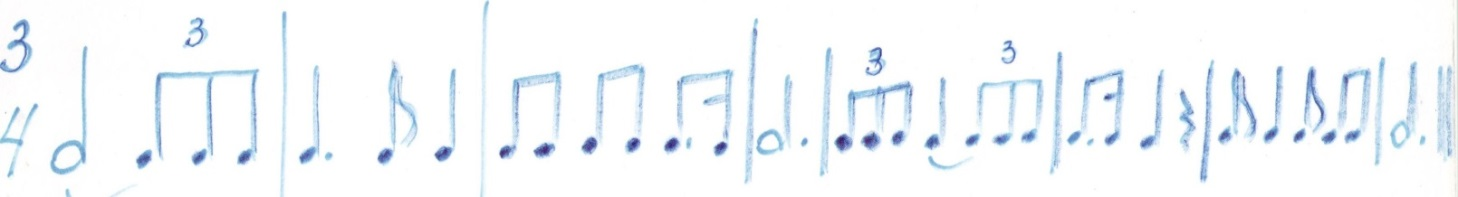 3
4
3
3
3